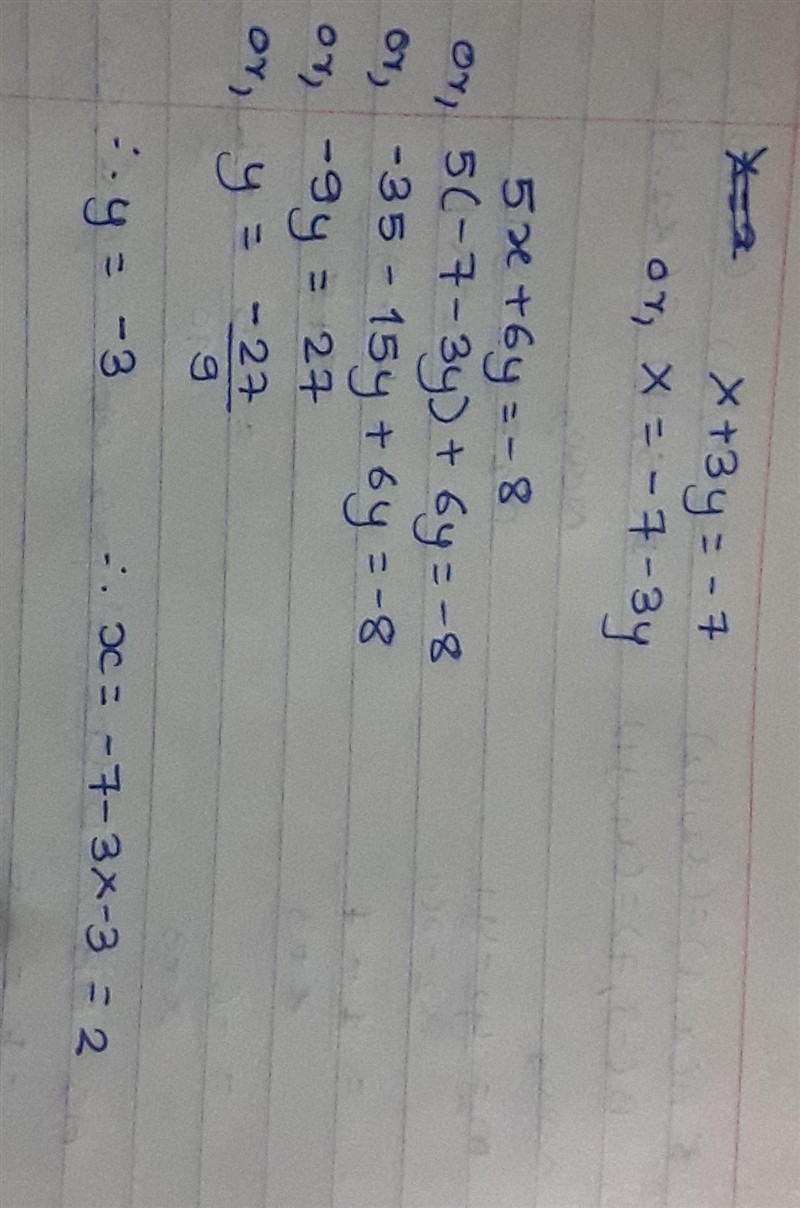 x + 3y = -7
or, x = -7 - 3y
5x + 6y = -8
or, 5(-7 - 3y) + 6y = -8
or, -35 - 15y + 6y = -8
or, -9y = 27
or, y = -27/9
∴ y = -3 ∴ x = -7 - 3x-3 = 2